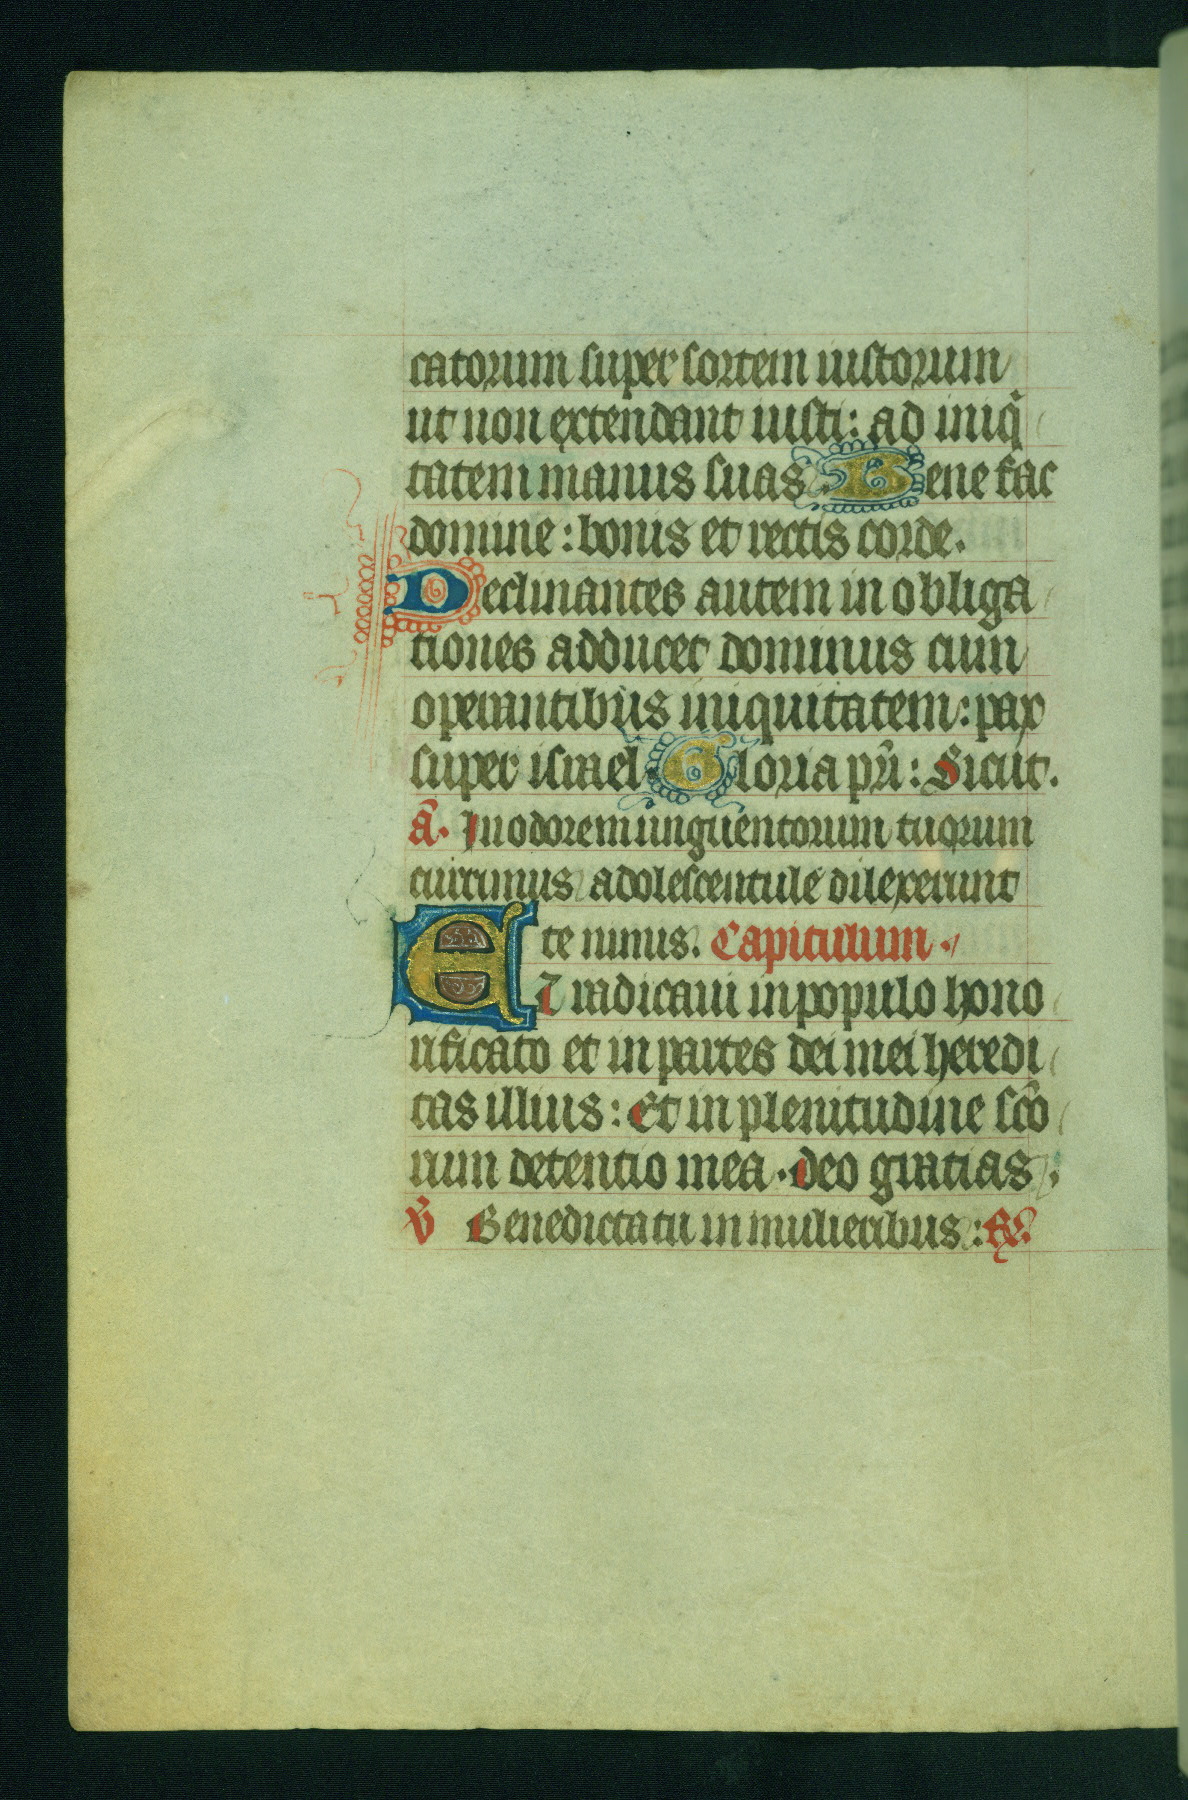 catorum super sortem iustorum
ut non extendant iusti: ad iniq̃
tatem manus suas Bene fac
domine: bonis et rectis corde.
Declinantes autem in obliga
tiones adducet dominus cum
operantibus iniquitatem: pax
super israel Gloria pr̃i: Sicut.
ã. In odorem unguentorum tuorum
currimus adolescentule dilexerunt
te nimis. Capitulum.
Et radicaui in populo hono
rificato et in partes dei mei heredi
tas illius: Et in plenitudine sc̃o
rum detentio mea. deo gratias.
v̄ Benedicta tu in mulieribus: R̃.